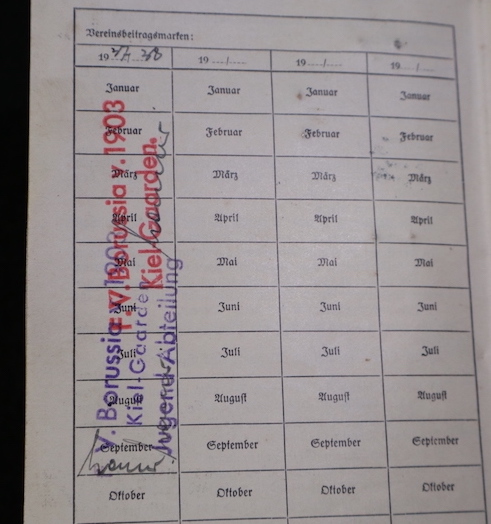 Vereinsbeitragsmarken:
19 37/38 19 ..../.... 19 ..../.... 19 ..../....
Januar Januar Januar Januar
Februar Februar Februar Februar
März März März März
April April April April
Mai Mai Mai Mai
Juni Juni Juni Juni
Juli Juli Juli Juli
August August August August
September September September September
Oktober Oktober Oktober Oktober
V. Borussia v. 1903
Kiel-Gaarden.
V. Borussia 1903
Kiel-Gaarden
Jugend-Abteilung